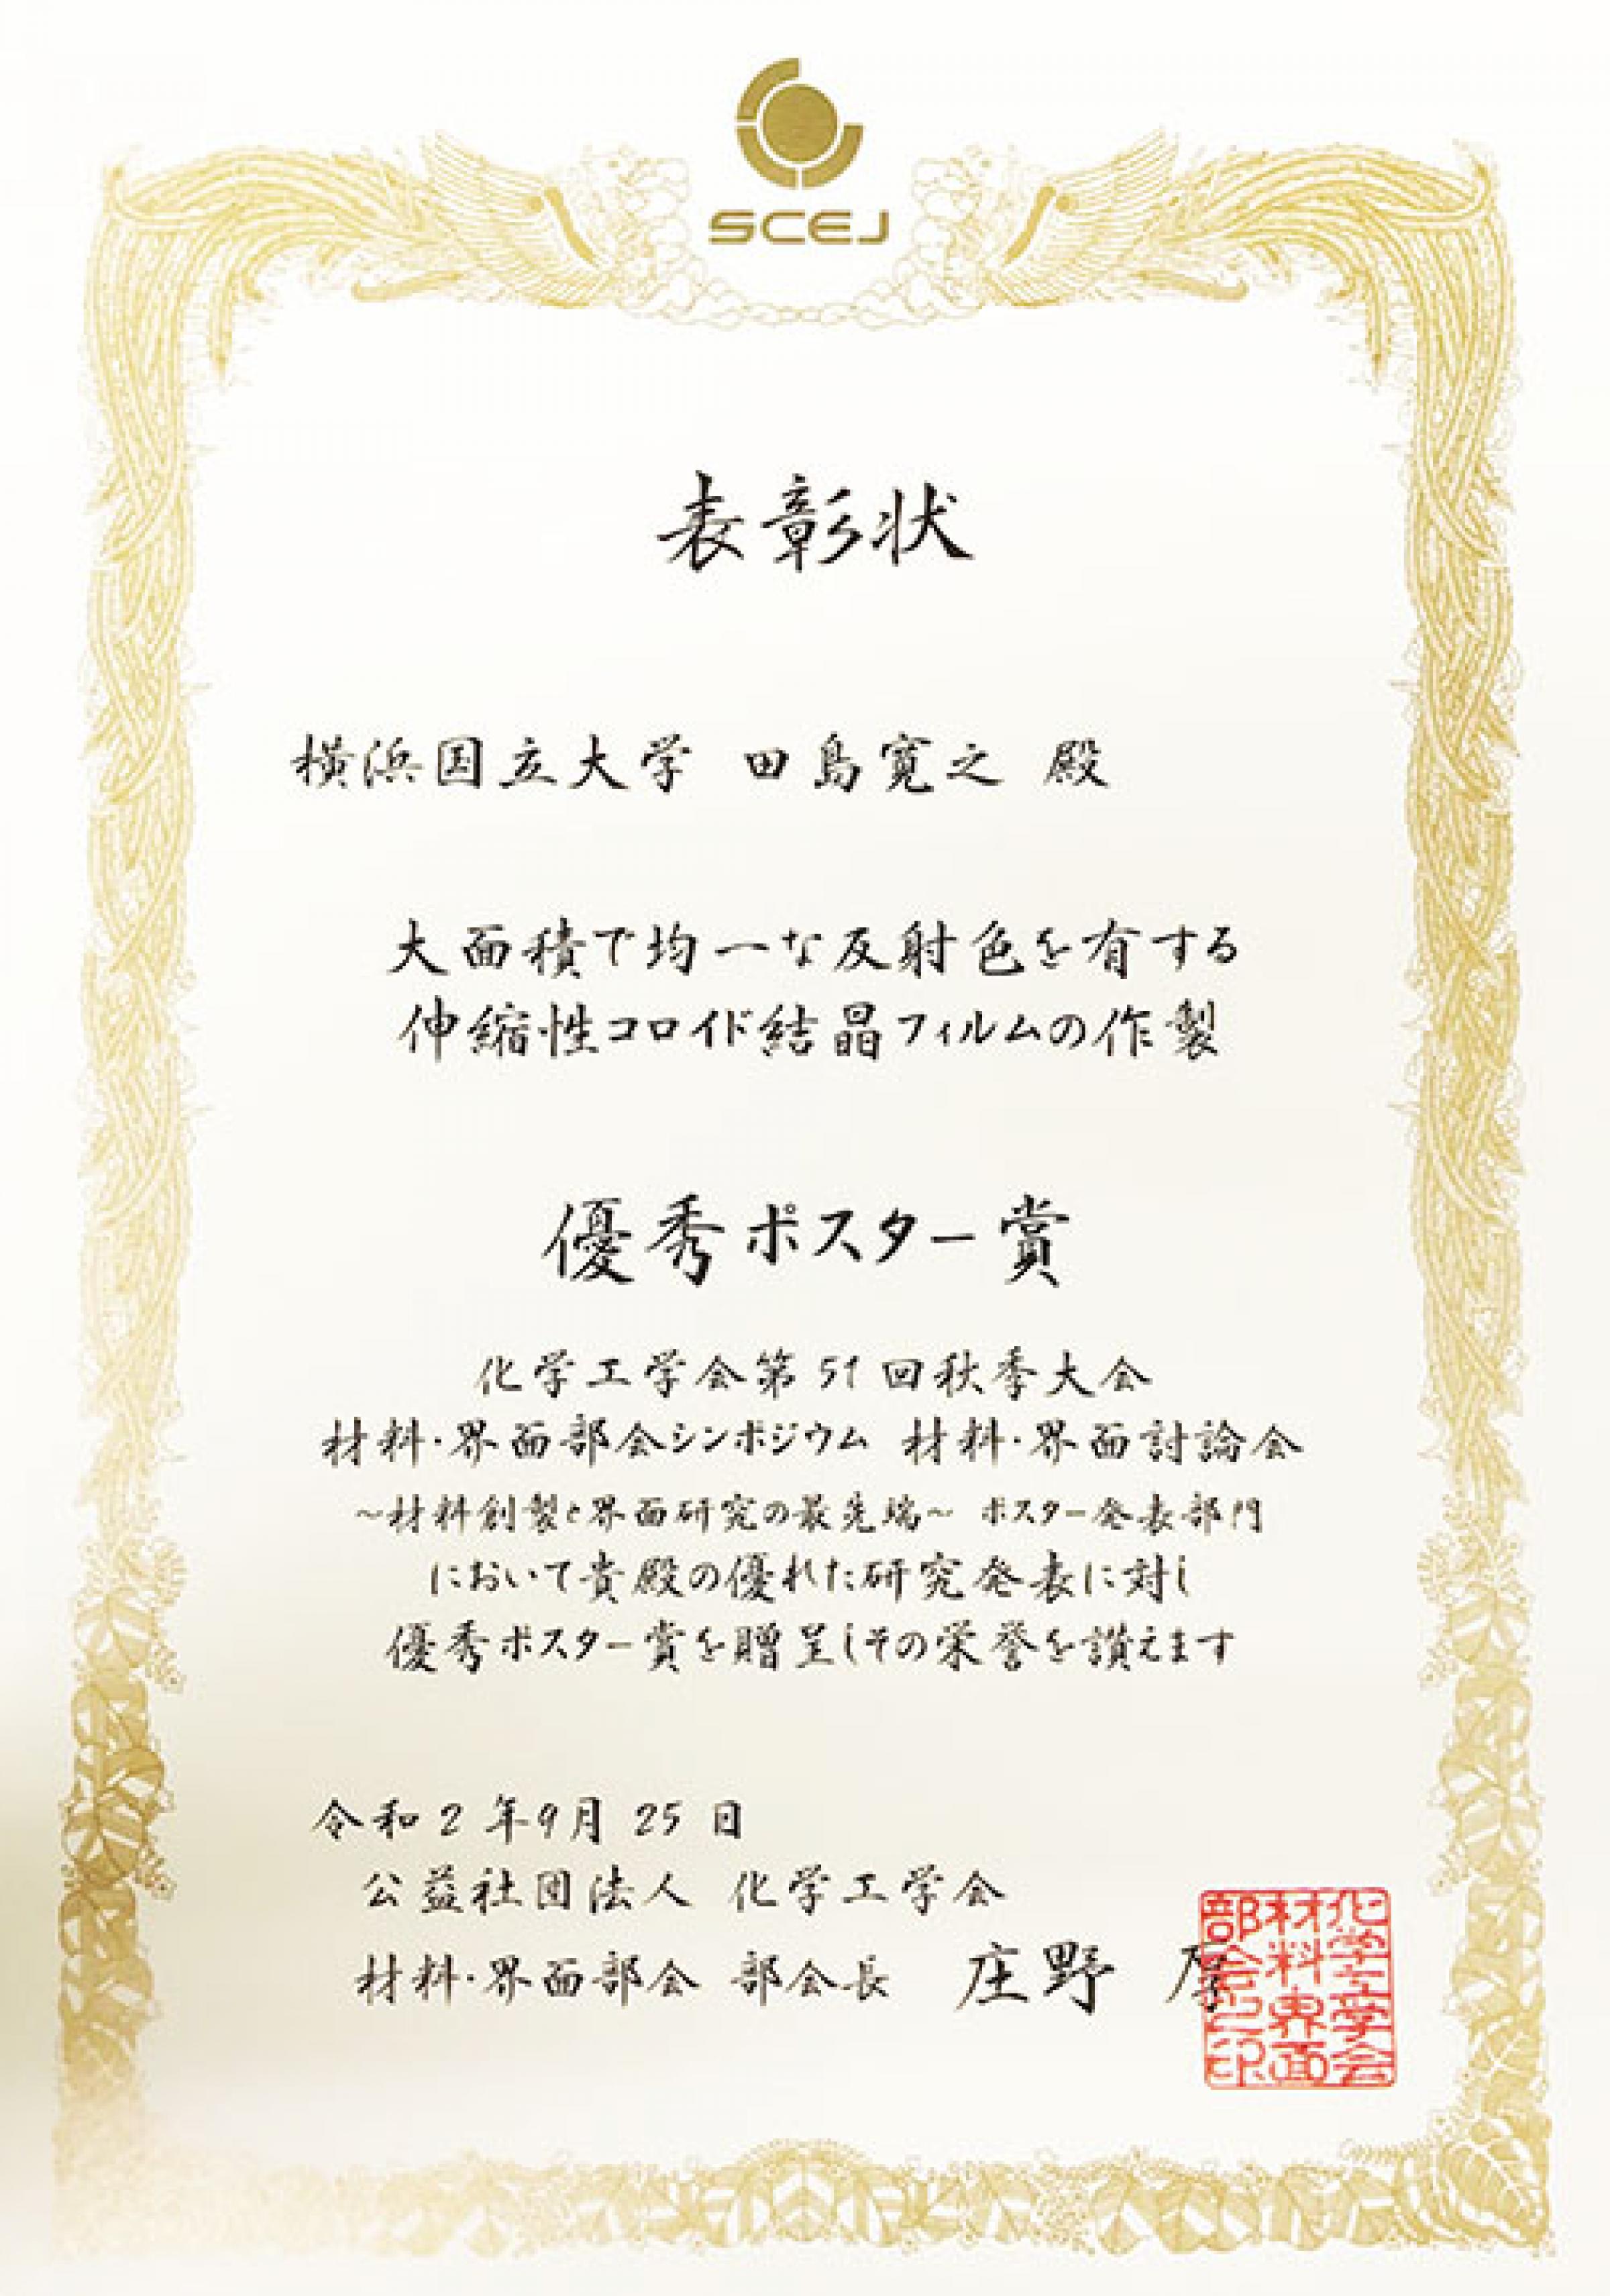 SCEJ
表彰状
横浜国立大学 田島寛之 殿
大面積で均一な反射色を有する
伸縮性コロイド結晶フィルムの作製
優秀ポスター賞
化学工学会第51回秋季大会
材料・界面部会シンポジウム 材料・界面討論会
~材料創製と界面研究の最先端~ ポスター発表部門
において貴殿の優れた研究発表に対し
優秀ポスター賞を贈呈しその栄誉を讃えます
令和2年9月25日
公益社団法人 化学工学会
材料・界面部会 部会長 庄野 厚
化学工学会
材料界面
部会之印